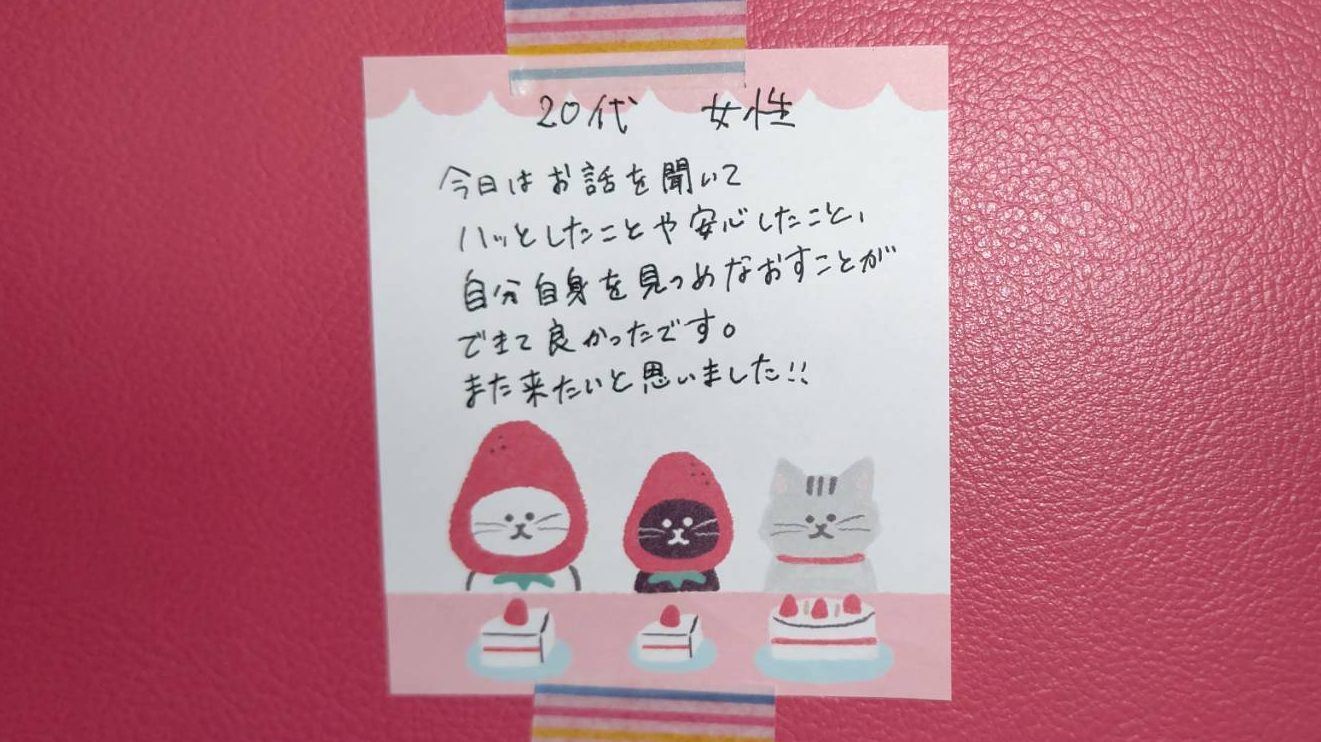 20代 女性
今日はお話を聞いて
ハッとしたことや安心したこと、
自分自身を見つめなおすことが
できて良かったです。
また来たいと思いました!!